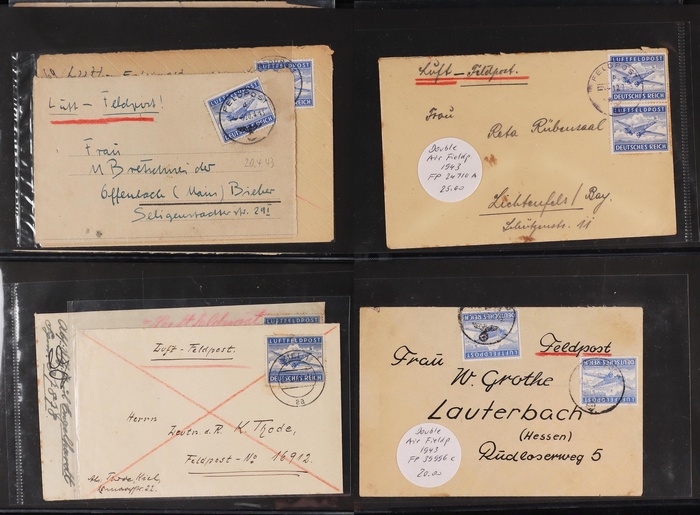 Luft - Feldpost!
LUFTFELDPOST
REICH
FELDPOST
20.4.43
Frau
M Bretschneider
Offenbach (Main) Bieber
Seligenstädterstr. 29I
Luft - Feldpost.
LUFTFELDPOST
DEUTSCHES REICH
LUFTFELDPOST
DEUTSCHES REICH
FELDPOST
Frau
Reta Rübensaal
Double
Air Fieldp
1943
FP 24710 A
25.00
Lichtenfels / Bay.
11
LUFTFELDPOST
Luft - Feldpost.
LUFTFELDPOST
DEUTSCHES REICH
Herrn
Leutn. d. R. K. Thode,
Feldpost - No 16912.
LUFTFELDPOST
DEUTSCHES REICH
Feldpost
LUFTFELDPOST
DEUTSCHES REICH
Frau
W. Grothe
Lauterbach
(Hessen)
Rudloserweg 5
Double
Air Fieldp
1943
FP 39996 c
20.00